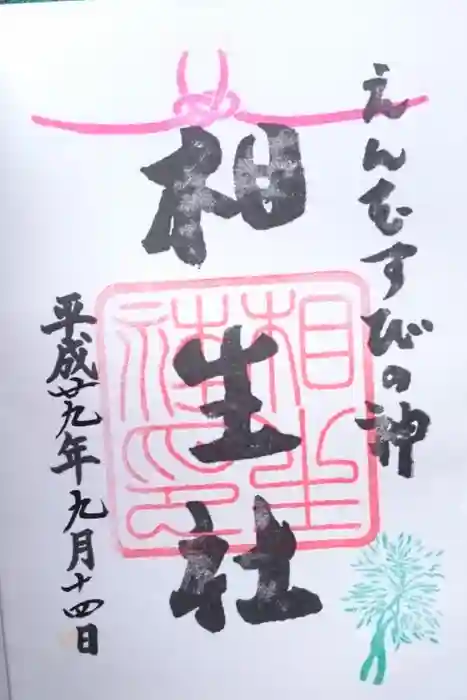 えんむすびの神
相生社
平成廿九年九月十四日